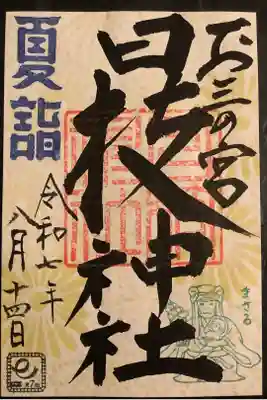 お三の宮
日枝神社
夏詣
令和七年
八月十四日
まさる